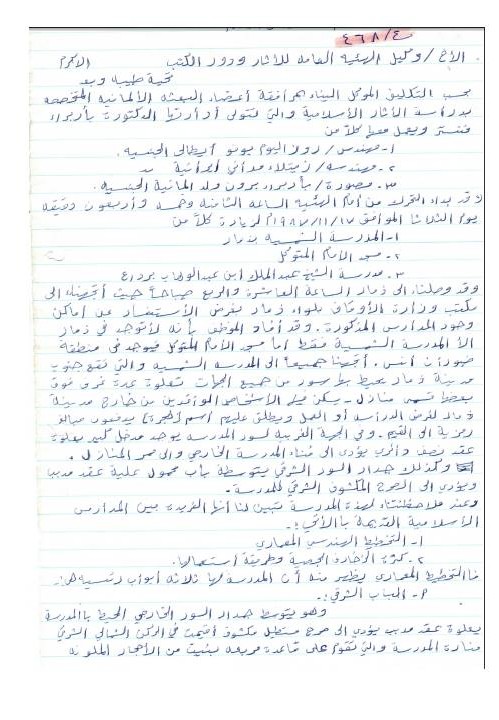 ٤٦٨/٤
الأخ / وكيل الهيئة العامة للآثار ودور الكتب الأكرم
تحية طيبة وبعد
بحسب التكليف الموكل إلينا بمرافقة أعضاء البعثة الألمانية المتخصصة
بدراسة الآثار الإسلامية والتي تتولى أدارتها الدكتورة باربراء
فنستر ويعمل معها كلاً من
١- مهندس / روز اليو بونو أيطالي الجنسية.
٢- مهندسة / زينلاء مدائي ايرانية
٣- مصورة / باربراء برون ولد المانية الجنسية.
وقد بداء التحرك من أمام الهيئة الساعة الثامنة وخمسة وأربعون دقيقة
يوم الثلاثا الموافق ١٩٨٧/١١/١٧م لزيارة كلاً من
١- المدرسة الشمسية بذمار
٢- مسجد الإمام المتوكل
٣- مدرسة الشيخ عبدالملك ابن عبدالوهاب برداع
وقد وصلنا الى ذمار الساعة العاشرة والربع صباحاً حيث أتجهنا الى
مكتب وزارة الأوقاف بلواء ذمار بغرض الأستفسار عن أماكن
وجود المدارس المذكورة. وقد أفاد الموظف بأنه لا توجد في ذمار
الا المدرسة الشمسية فقط اما مسجد الإمام المتوكل فيوجد في منطقة
ضوران أنس. أتجهنا جميعاً الى المدرسة الشمسية والتي تقع جنوب
مدينة ذمار يحيط بها سور من جميع الجهات تتعلوة عدة غرف فوق
بعضها تسمى منازل - يسكن فيها الأشخاص الوافدين من خارج مدينة
ذمار لغرض الدراسه أو العمل ويطلق عليهم أسم (الهجرة) يدفعون مبالغ
رمزية الى القيم. وفي الجهة الغربية لسور المدرسه يوجد مدخل كبير يعلوة
عقد نصف دائري يؤدى الى فناء المدرسة الخارجي والى ممر المنازل.
وكذلك جدار السور الشرقي يتوسطة باب محمول علية عقد مدبب
ويؤدي الى الصرح المكشوف الشرقي للمدرسة.
وعند ملاحظتنا لهذة المدرسة تبين لنا أنها الفريدة بين المدارس
الأسلامية القديمة بالآتي:-
١- التخطيط الهندسي المعماري
٢- كثرة الزخارف الجصية وطريقة أستعمالها.
فالتخطيط المعماري يظهر منه أن المدرسة لها ثلاثه أبواب رئيسيه هي:
أ- الباب الشرقي:-
وهو يتوسط جدار السور الخارجي المحيط بالمدرسة
يعلوة عقد مدبب يؤدي الى صرح مستطيل مكشوف أقيمت في الركن الشمالي الشرقي
منارة المدرسة والتي تقوم على قاعدة مربعه بنيت من الأحجار الملونه